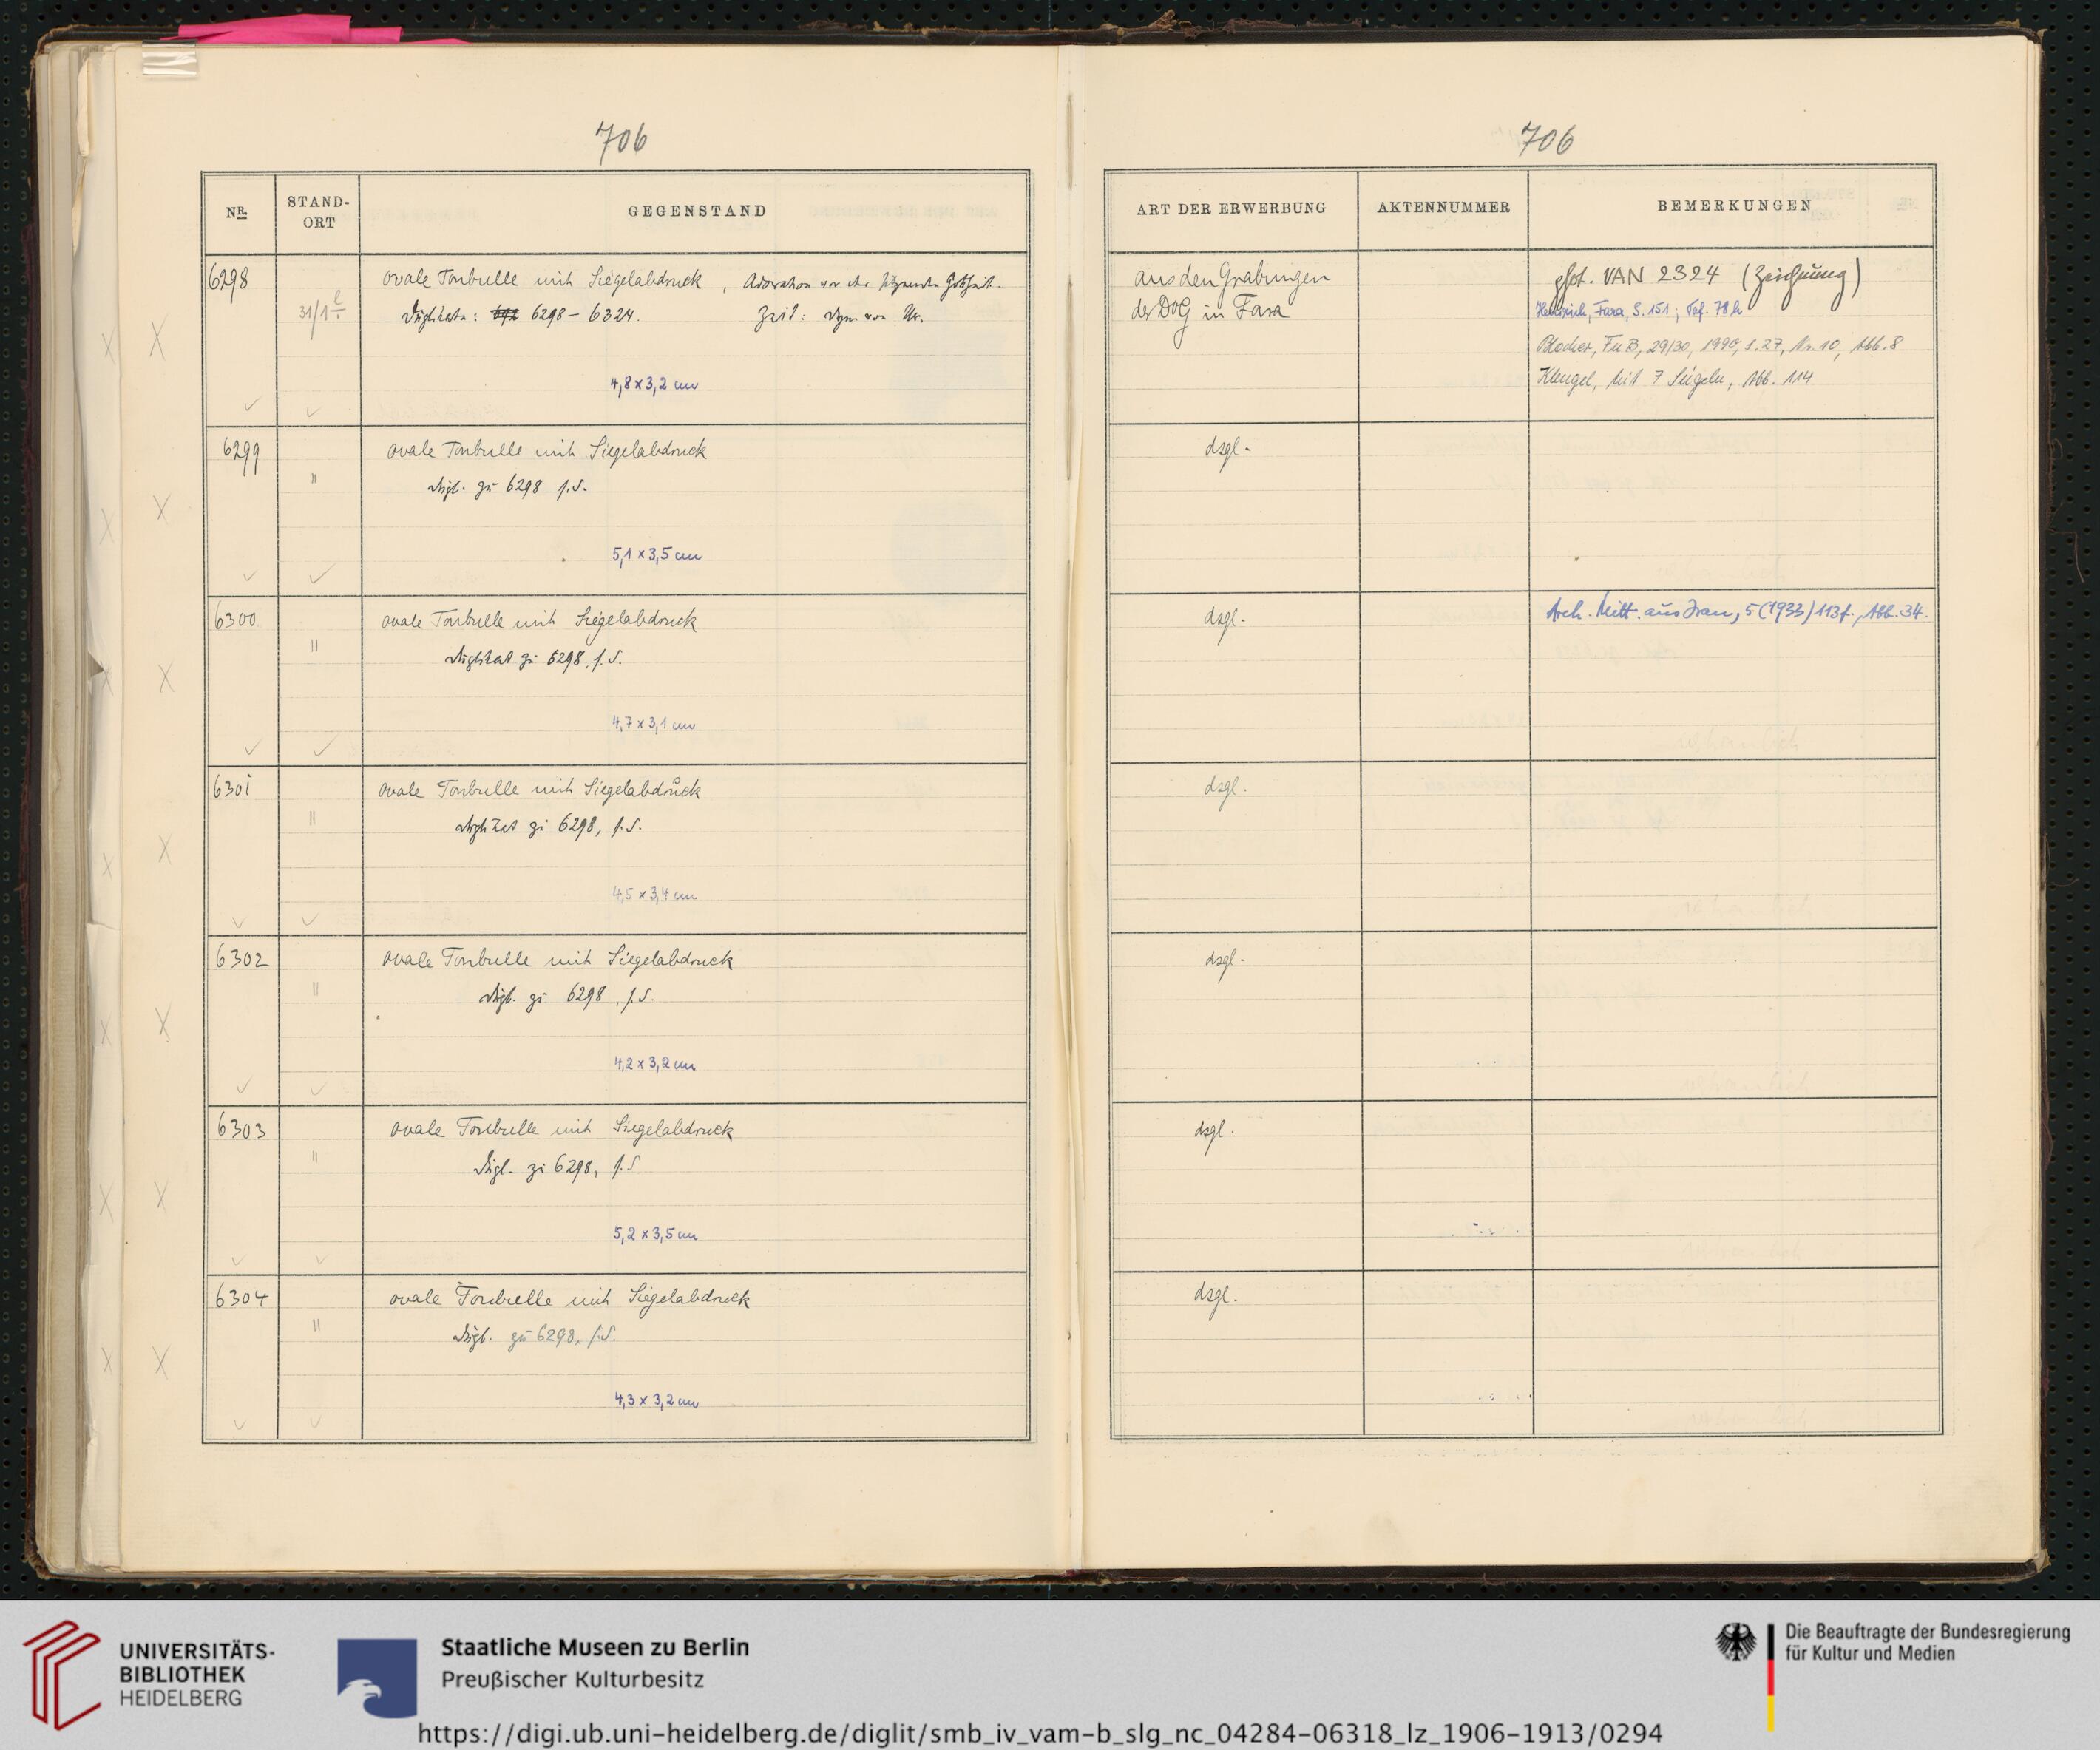 706
NR. STAND-ORT GEGENSTAND
6298 ovale Tonbulle mit Siegelabdruck, Adoration vor der sitzenden Gottheit.
31/1 Duplikate: 6298 – 6324. Zeit: Dyn. von Ur.
4,8 x 3,2 cm
6299 ovale Tonbulle mit Siegelabdruck
" Dupl. zu 6298 s. d.
5,1 x 3,5 cm
6300 ovale Tonbulle mit Siegelabdruck
" Duplikat zu 6298, s. d.
4,7 x 3,1 cm
6301 ovale Tonbulle mit Siegelabdruck
" Duplikat zu 6298, s. d.
4,5 x 3,4 cm
6302 ovale Tonbulle mit Siegelabdruck
" Dupl. zu 6298, s. d.
4,2 x 3,2 cm
6303 ovale Tonbulle mit Siegelabdruck
" Dupl. zu 6298, s. d.
5,2 x 3,5 cm
6304 ovale Tonbulle mit Siegelabdruck
" Dupl. zu 6298, s. d.
4,3 x 3,2 cm
706
ART DER ERWERBUNG AKTENNUMMER BEMERKUNGEN
aus den Grabungen phot. VAN 2324 (Zeichnung)
der DOG in Fara Heinrich, Fara, S. 151; Taf. 78 h
Blocher, FuB, 29/30, 1990, S. 27, Nr. 10, Abb. 8
Klengel, Mit 7 Siegeln, Abb. 114
dsgl.
dsgl. Arch. Mitt. aus Iran, 5 (1933) 113f., Abb. 34.
dsgl.
dsgl.
dsgl.
dsgl.
UNIVERSITÄTS-
BIBLIOTHEK
HEIDELBERG
Staatliche Museen zu Berlin
Preußischer Kulturbesitz
Die Beauftragte der Bundesregierung
für Kultur und Medien
https://digi.ub.uni-heidelberg.de/diglit/smb_iv_vam-b_slg_nc_04284-06318_lz_1906-1913/0294